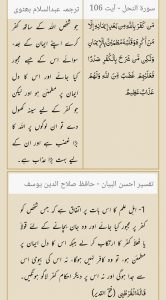 سورة النحل - آیت 106
ترجمہ عبدالسلام بھٹوی
مَن كَفَرَ بِاللَّهِ مِن بَعْدِ إِيمَانِهِ إِلَّا
مَنْ أُكْرِهَ وَقَلْبُهُ مُطْمَئِنٌّ بِالْإِيمَانِ
وَلَٰكِن مَّن شَرَحَ بِالْكُفْرِ صَدْرًا
فَعَلَيْهِمْ غَضَبٌ مِّنَ اللَّهِ وَلَهُمْ
عَذَابٌ عَظِيمٌ
جو شخص اللہ کے ساتھ کفر
کرے اپنے ایمان کے بعد،
سوائے اس کے جسے مجبور
کیا جائے اور اس کا دل
ایمان پر مطمئن ہو اور لیکن
جو کفر کے لیے سینہ کھول
دے تو ان لوگوں پر اللہ کا
بڑا غضب ہے اور ان کے
لیے بہت بڑا عذاب ہے۔
تفسیر احسن البیان - حافظ صلاح الدین یوسف
1- اہل علم کا اس بات پر اتفاق ہے کہ جس شخص کو
کفر پر مجبور کیا جائے اور وہ جان بچانے کے لئے قولاً
یا فعلاً کفر کا ارتکاب کر لے جبکہ اس کا دل ایمان پر
مطمئن ہو، تو وہ کافر نہیں ہوگا، نہ اس کی بیوی اس
سے جدا ہوگی اور نہ اس پر دیگر احکام کفر لاگو ہوں گے۔
قَالَهُ الْقُرْطُبِيُّ (فتح القدیر)